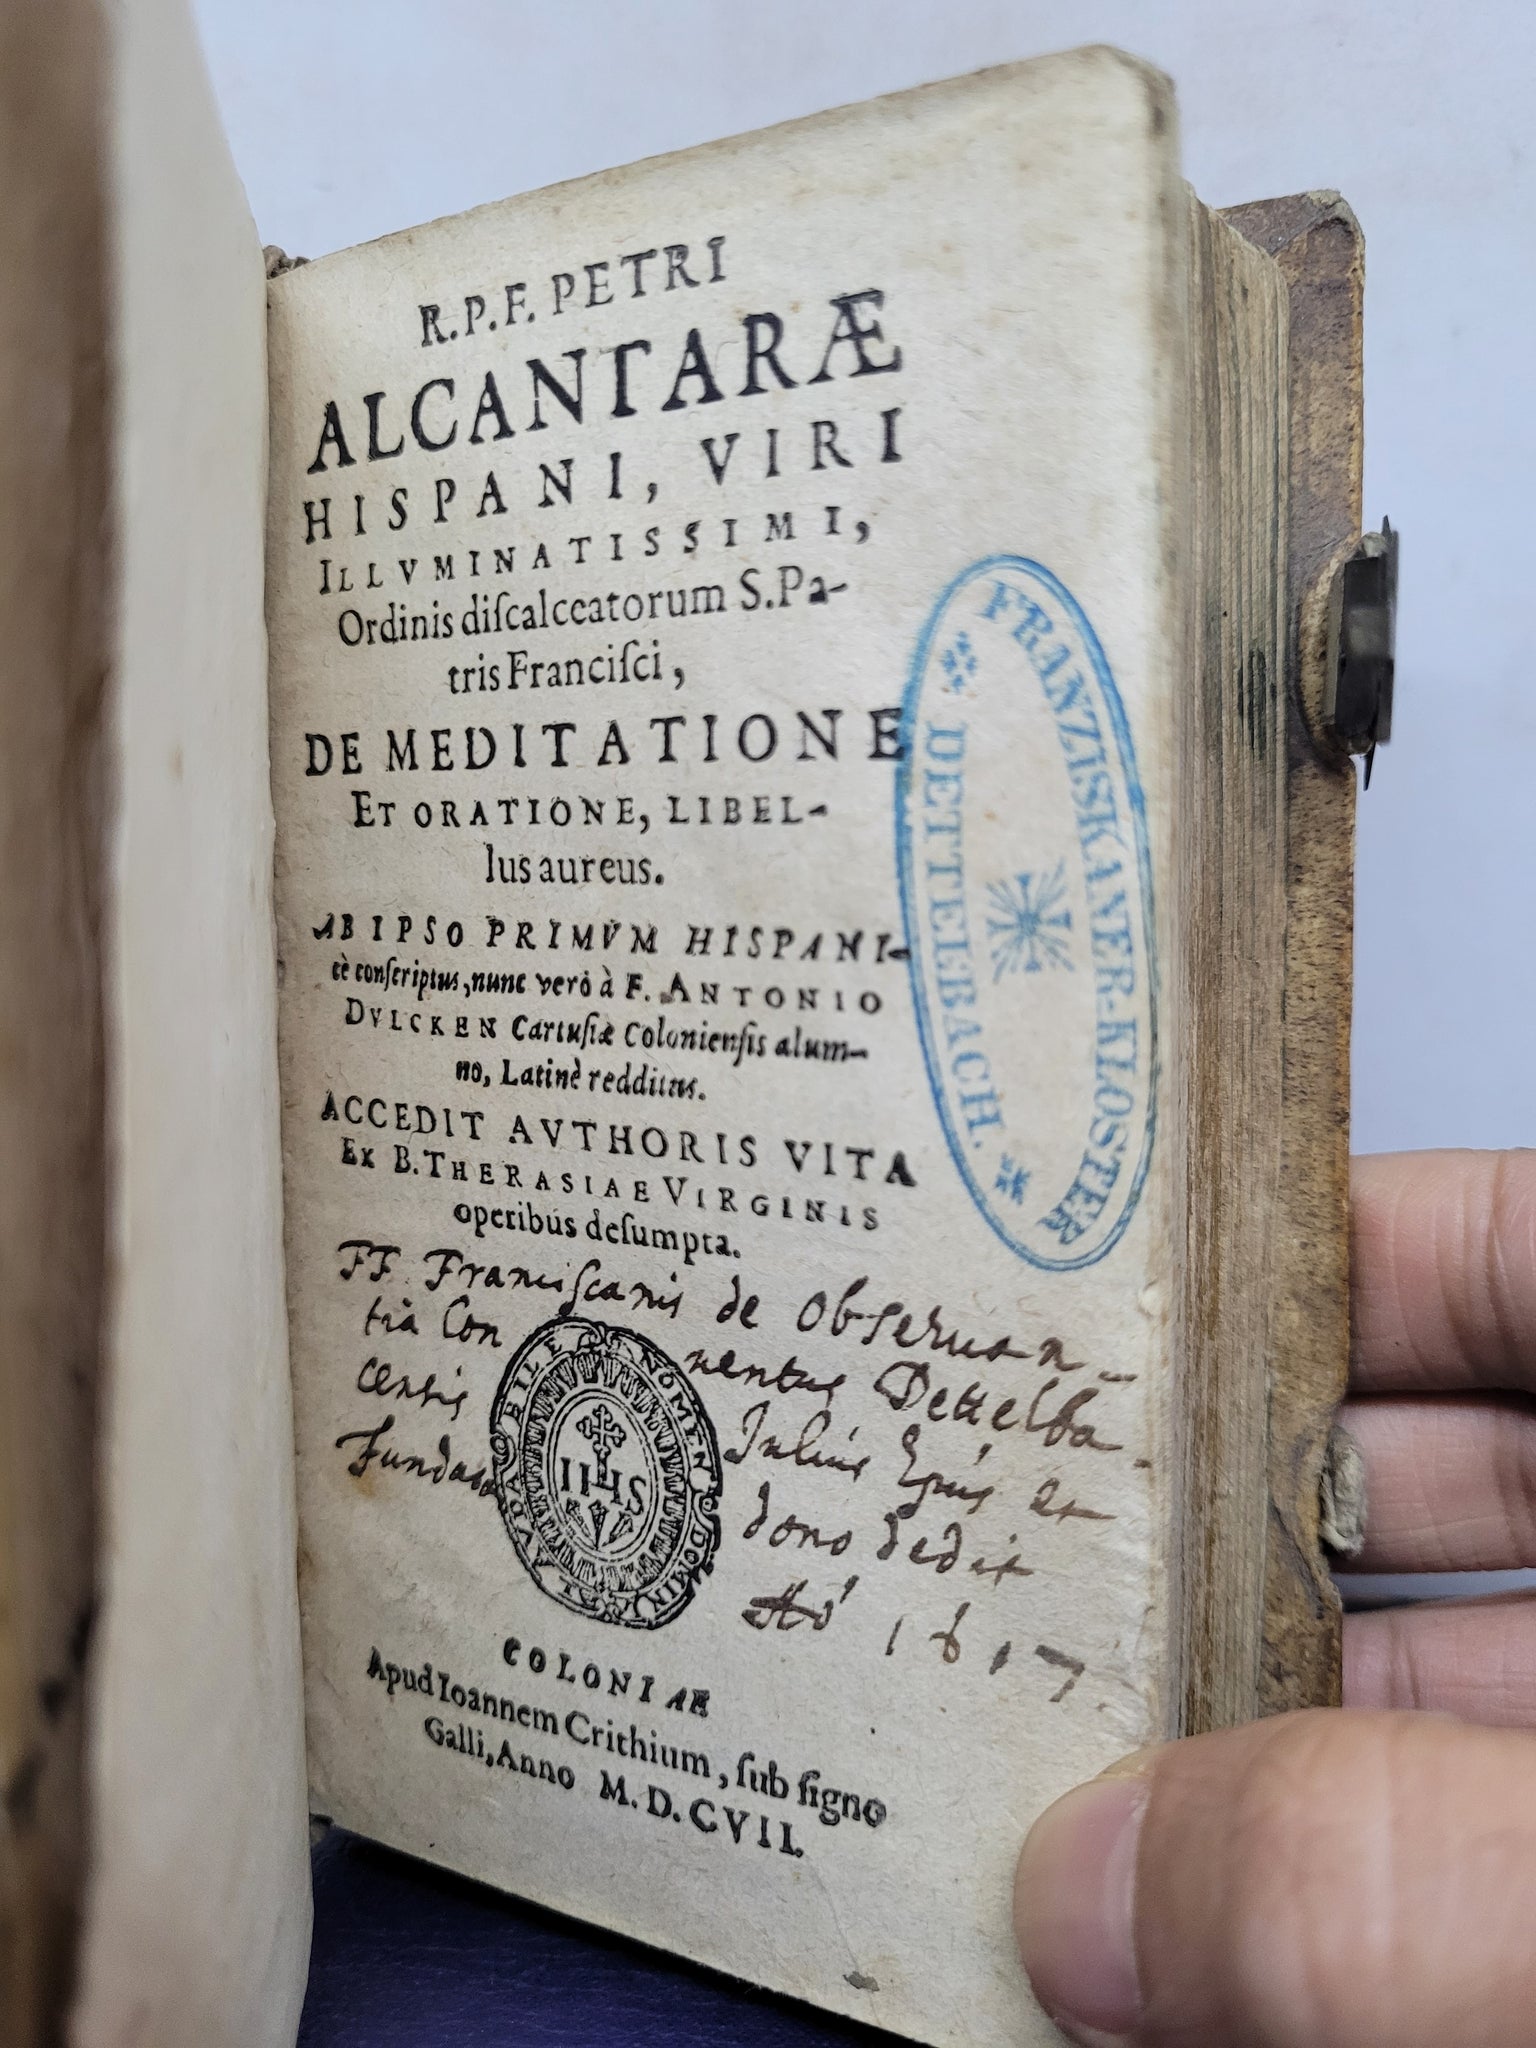 R.P.F. PETRI
ALCANTARÆ
HISPANI, VIRI
ILLVMINATISSIMI,
Ordinis diſcalceatorum S. Pa-
tris Franciſci,
DE MEDITATIONE
ET ORATIONE, LIBEL-
lus aureus.
AB IPSO PRIMVM HISPANI-
cè conſcriptus, nunc verò à F. ANTONIO
DVLCKEN Cartuſiæ Colonienſis alum-
no, Latinè redditus.
ACCEDIT AVTHORIS VITA
EX B. THERASIAE VIRGINIS
operibus deſumpta.
FF. Franciscanis de Obseruan-
tia Con uentus Dettelba-
censis Julius Ep̄us et
Fundator dono dedit
Aõ 1617
IHS
LAVDABILE NOMEN DOMINI EST
COLONIAE
Apud Ioannem Crithium, ſub ſigno
Galli, Anno M. D. CVII.
FRANZISKANER-KLOSTER
DETTELBACH.